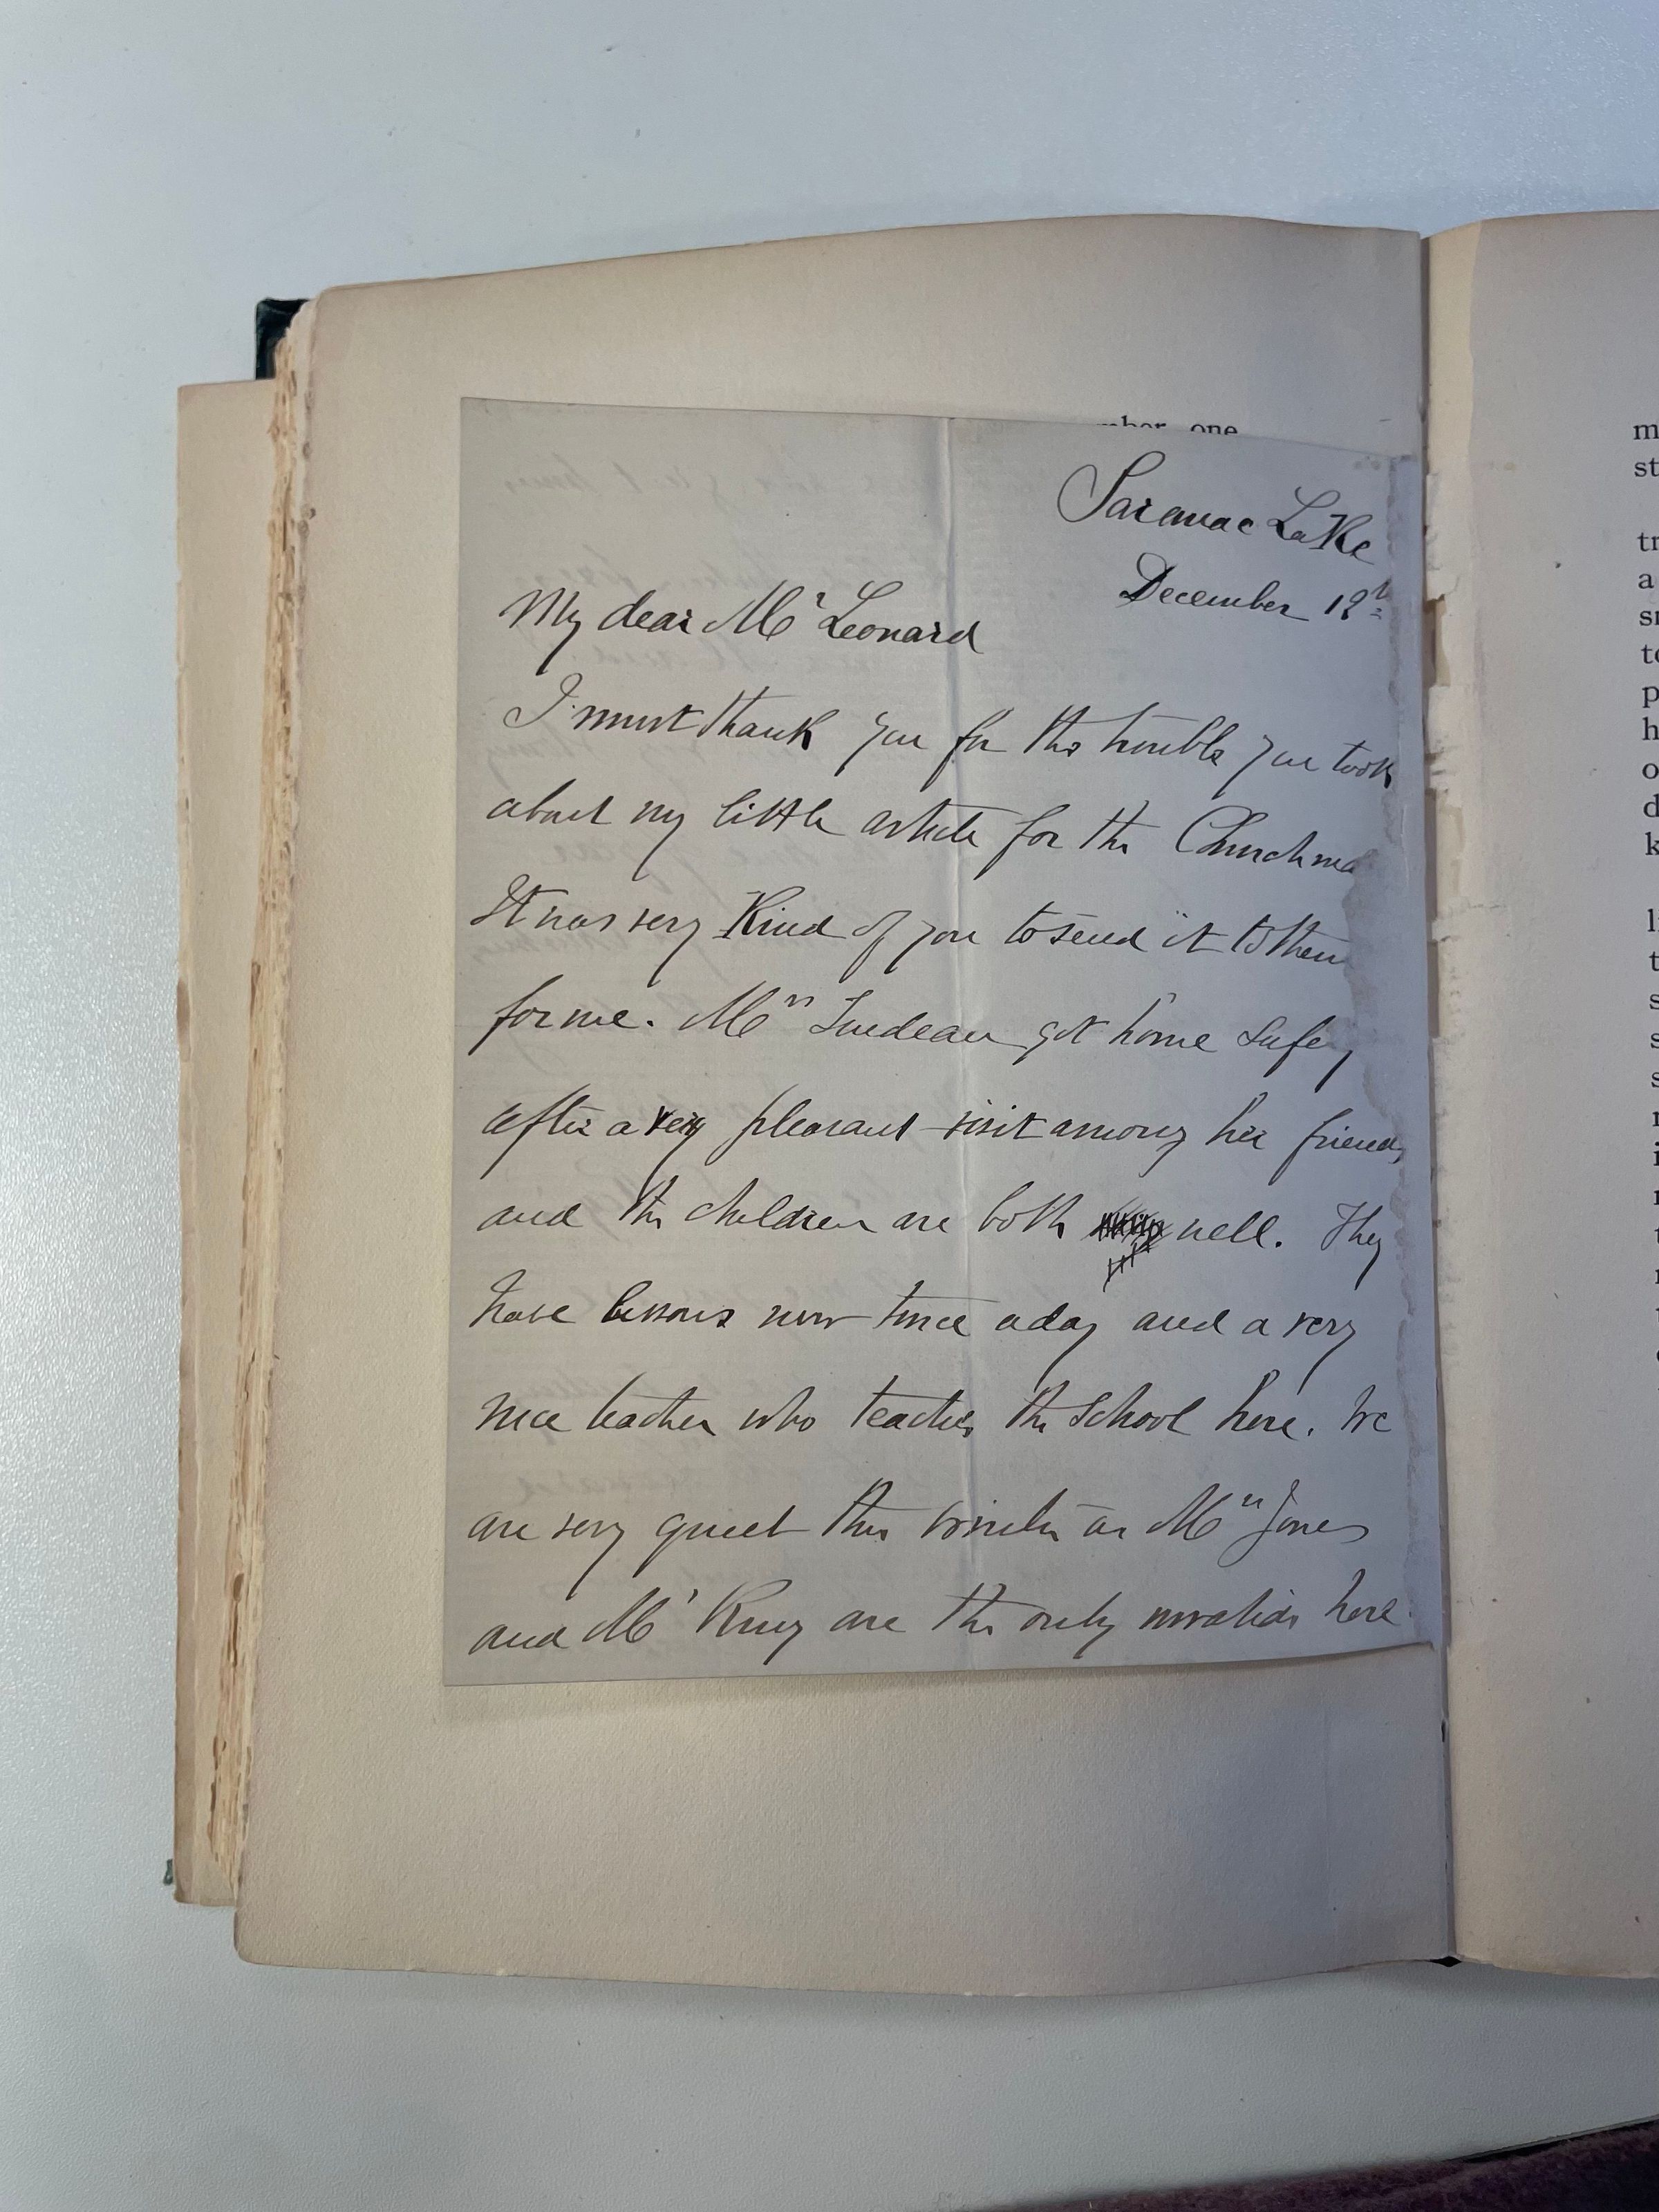 mber one
Saranac Lake
December 19th
My dear Mr Leonard
I must thank you for the trouble you took
about my little article for the Churchma
It was very Kind of you to send it to them
for me. Mrs Trudeau got home safely
after a very pleasant visit among her friends
and the children are both well. They
have lessons now twice a day and a very
nice teacher who teaches the School here. We
are very quiet this winter as Mrs Jones
and Mr King are the only invalids here
m
st
tr
a
sn
to
p
h
o
d
k
li
t
s
s
s
r
i
r
t
r
t